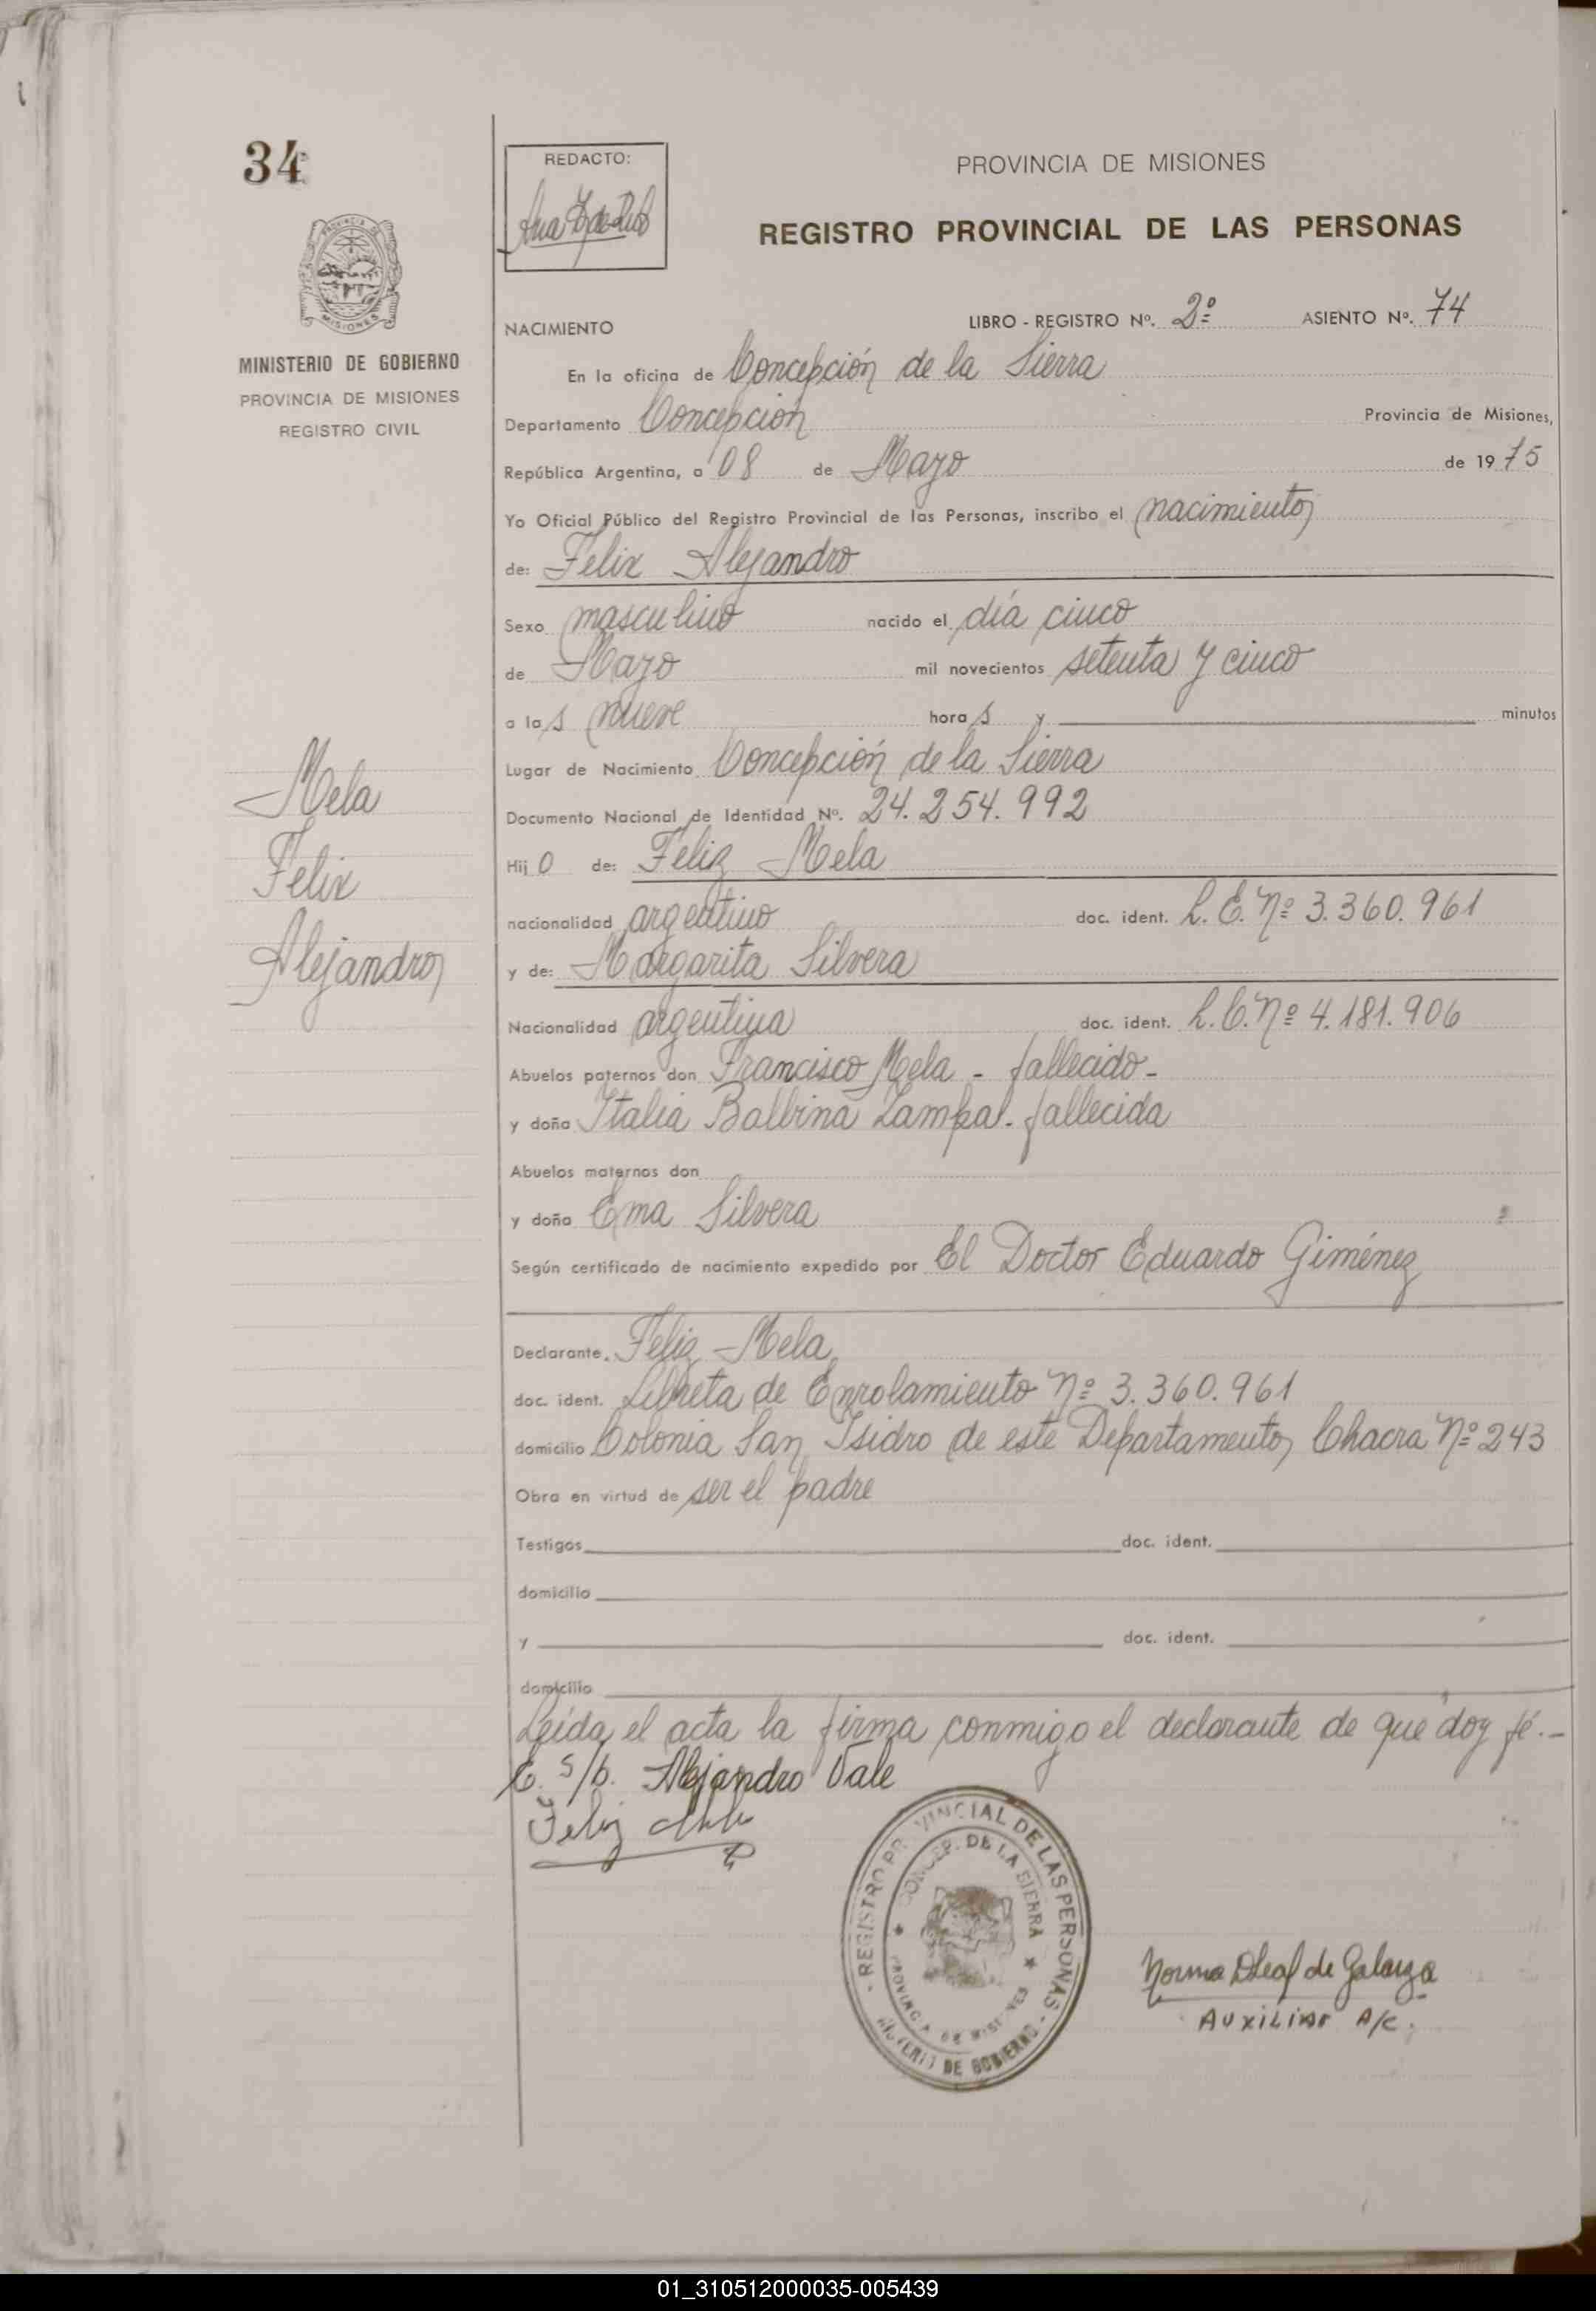 34
REDACTO:
PROVINCIA DE MISIONES
REGISTRO PROVINCIAL DE LAS PERSONAS
MISIONES
MINISTERIO DE GOBIERNO
PROVINCIA DE MISIONES
REGISTRO CIVIL
NACIMIENTO LIBRO - REGISTRO Nº. 2º ASIENTO Nº. 74
En la oficina de Concepción de la Sierra
Departamento Concepción Provincia de Misiones,
República Argentina, a 08 de Mayo de 1975
Yo Oficial Público del Registro Provincial de las Personas, inscribo el nacimiento
de: Felix Alejandro
Sexo masculino nacido el día cinco
de Mayo mil novecientos setenta y cinco
a las nueve horas y minutos
Lugar de Nacimiento Concepción de la Sierra
Documento Nacional de Identidad Nº. 24.254.992
Hijo de: Feliz Mela
nacionalidad argentino doc. ident. L. E. Nº 3.360.961
y de: Margarita Silvera
Nacionalidad argentina doc. ident. L. C. Nº 4.181.906
Abuelos paternos don Francisco Mela - fallecido -
y doña Italia Balbina Zampa. fallecida
Abuelos maternos don
y doña Ema Silvera
Según certificado de nacimiento expedido por El Doctor Eduardo Giménez
Mela
Felix
Alejandro
Declarante. Feliz Mela
doc. ident. Libreta de Enrolamiento Nº 3.360.961
domicilio Colonia San Isidro de este Departamento, Chacra Nº 243
Obra en virtud de ser el padre
Testigos doc. ident.
domicilio
y doc. ident.
domicilio
Leída el acta la firma conmigo el declarante de que doy fé.-
E. s/b. Alejandro Vale
Feliz Mela
REGISTRO PROVINCIAL DE LAS PERSONAS
CONCEP. DE LA SIERRA
PROVINCIA DE MISIONES
MINISTERIO DE GOBIERNO
Norma Leal de Galarza
AUXILIAR A/C.
01_310512000035-005439